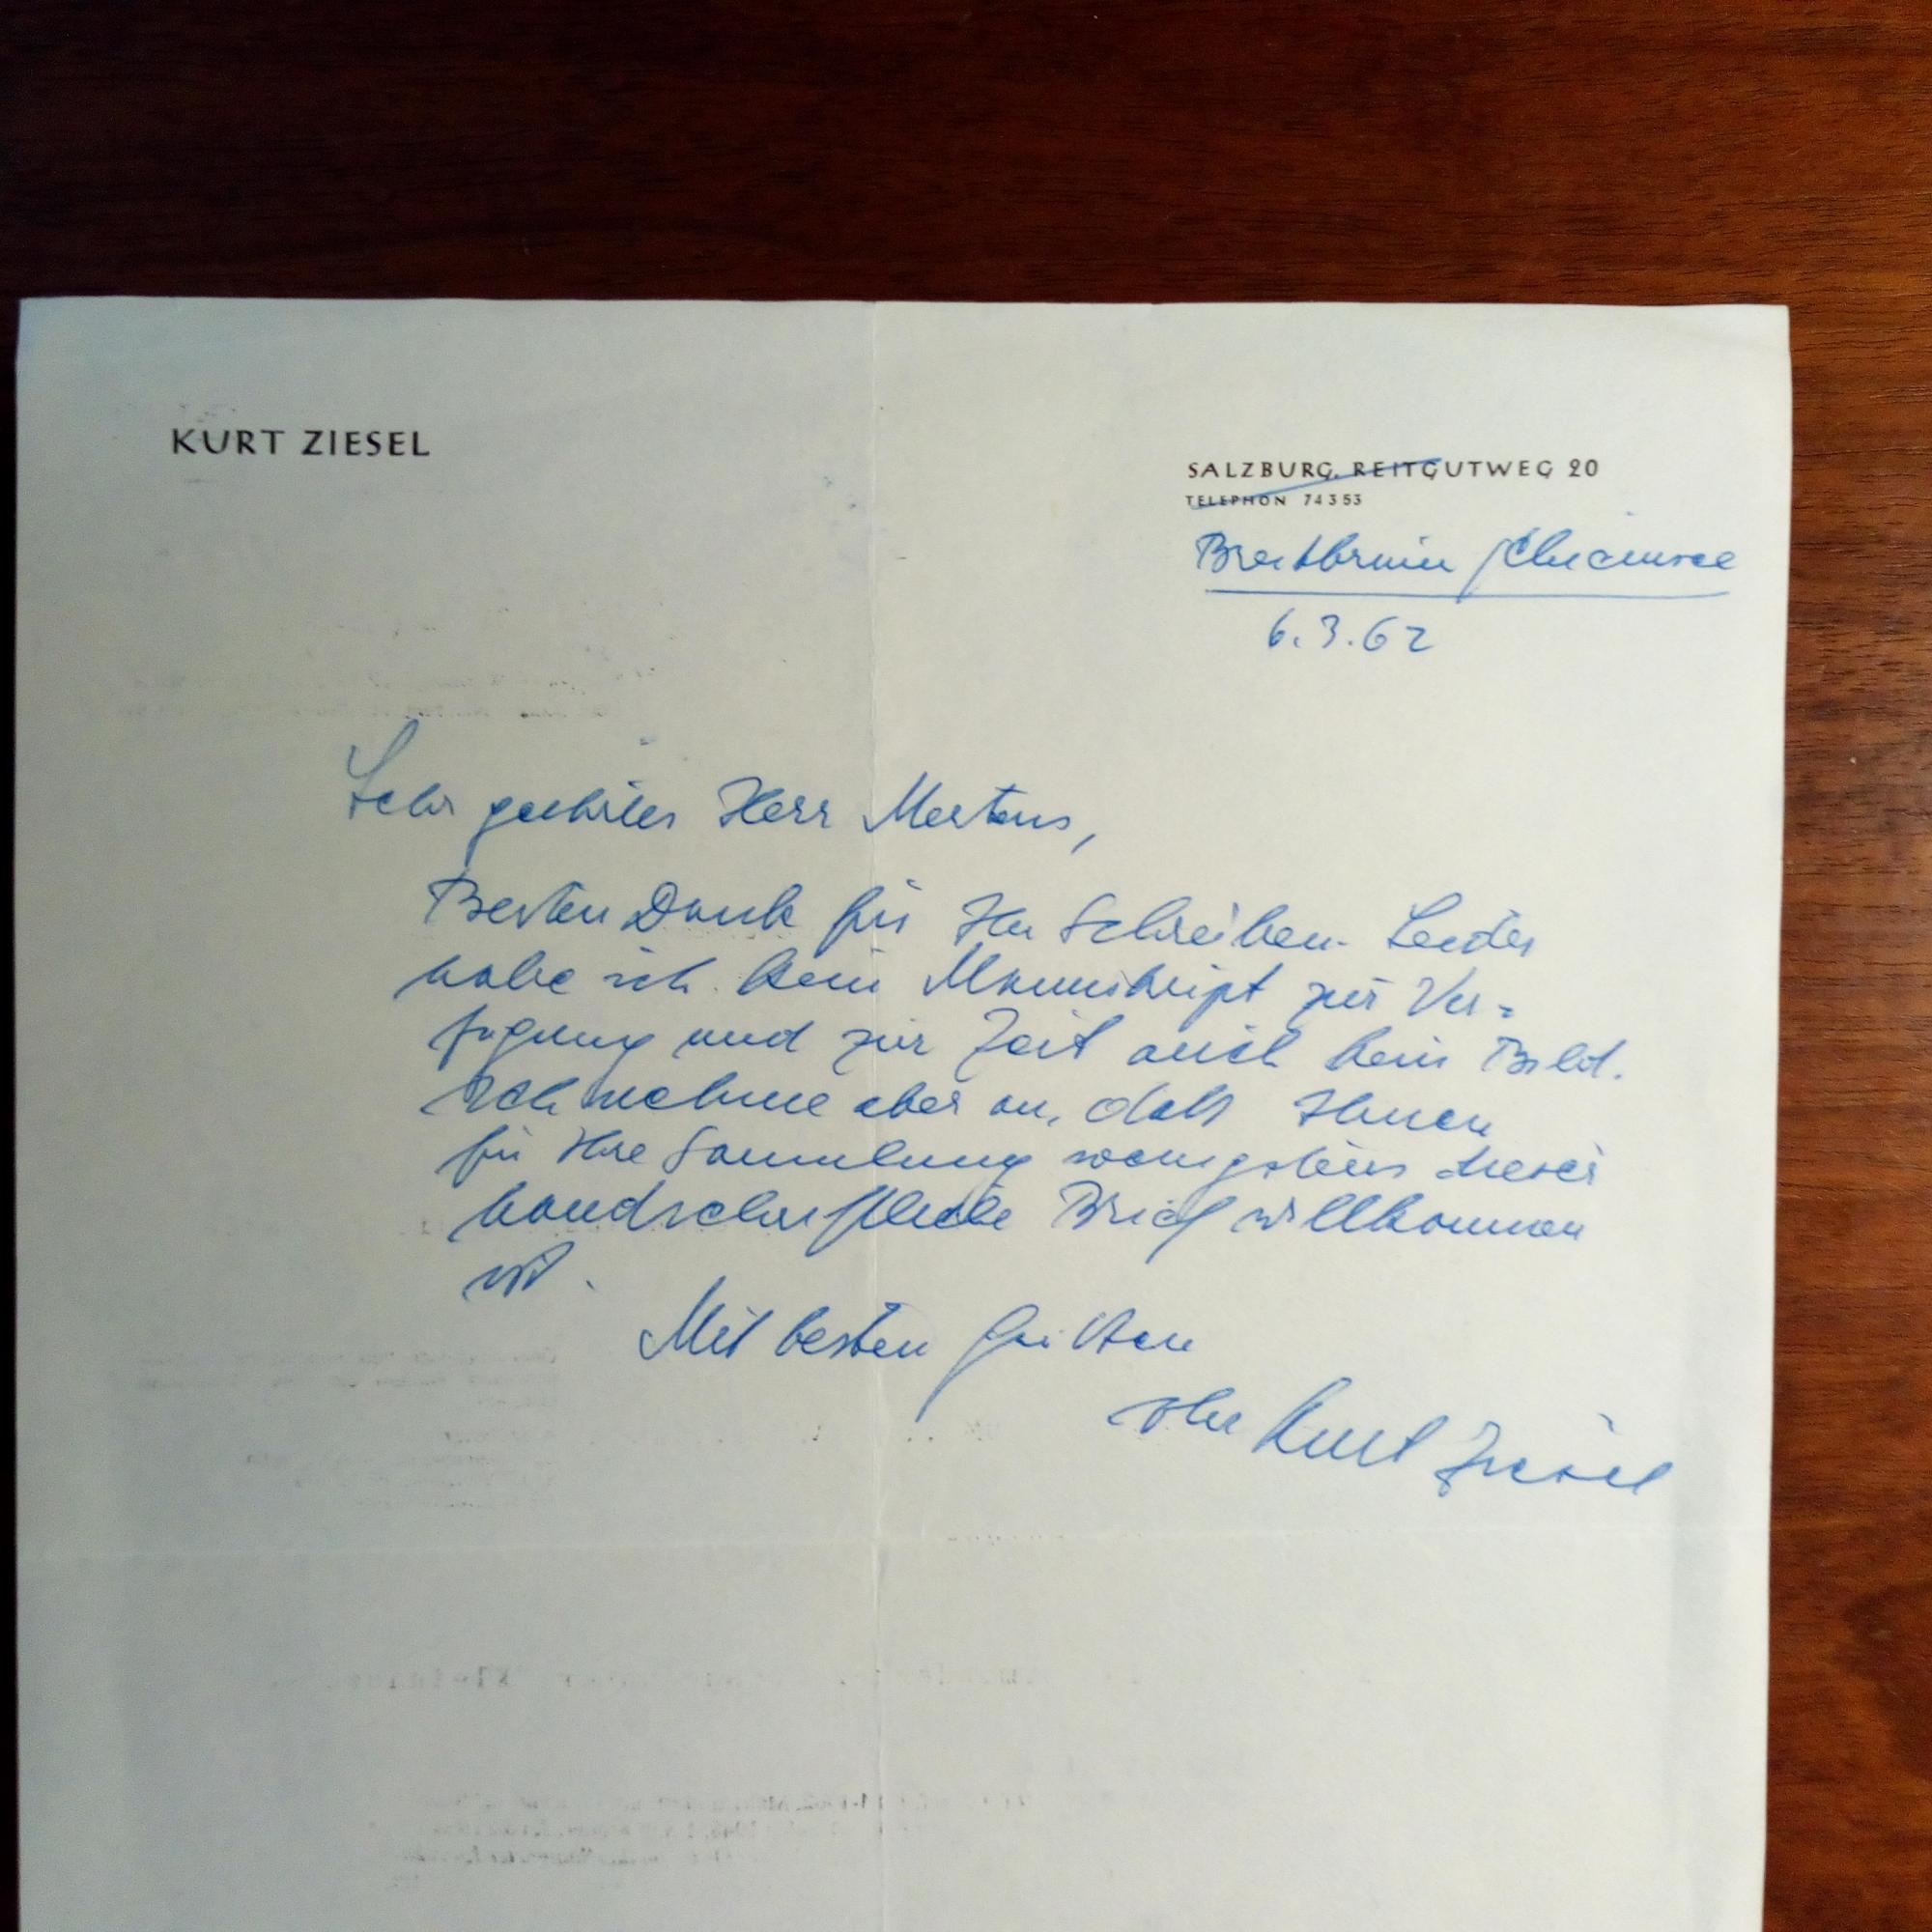 KURT ZIESEL
SALZBURG, REITGUTWEG 20
TELEPHON 74353
Breitbrunn / Chiemsee
6.3.62
Sehr geehrter Herr Mertens,
Besten Dank für Ihr Schreiben. Leider
habe ich kein Manuskript zur Ver-
fügung und zur Zeit auch kein Bild.
Ich nehme aber an, daß Ihnen
für Ihre Sammlung wenigstens dieser
handschriftliche Brief willkommen
ist.
Mit besten Grüßen
Ihr Kurt Ziesel